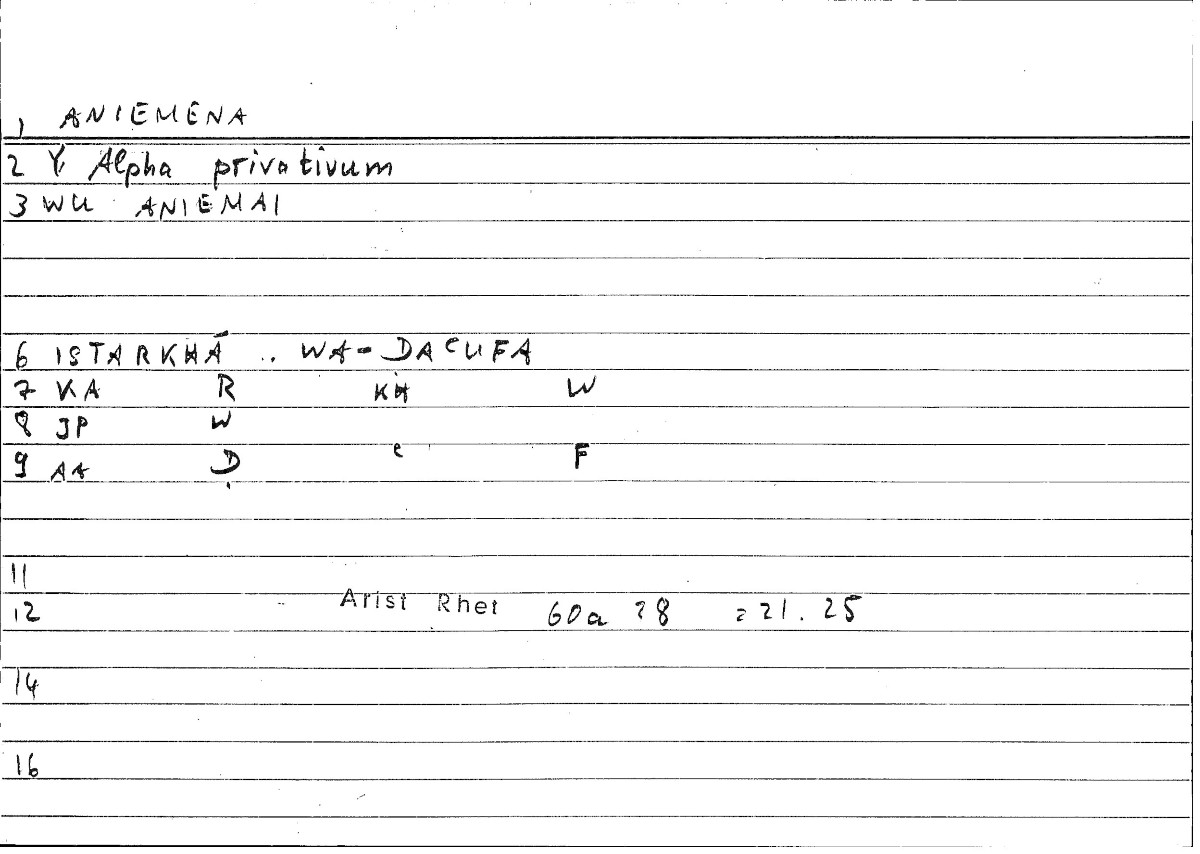 1 ANIEMENA
2 Y, Alpha privativum
3 WU ANIEMAI
6 ISTARKHĀ .. WA-ḌAʿUFA
7 KA R KH W
8 JP W
9 AA Ḍ ʿ F
11
12 Arist Rhet 60a 28 = 21. 25
14
16